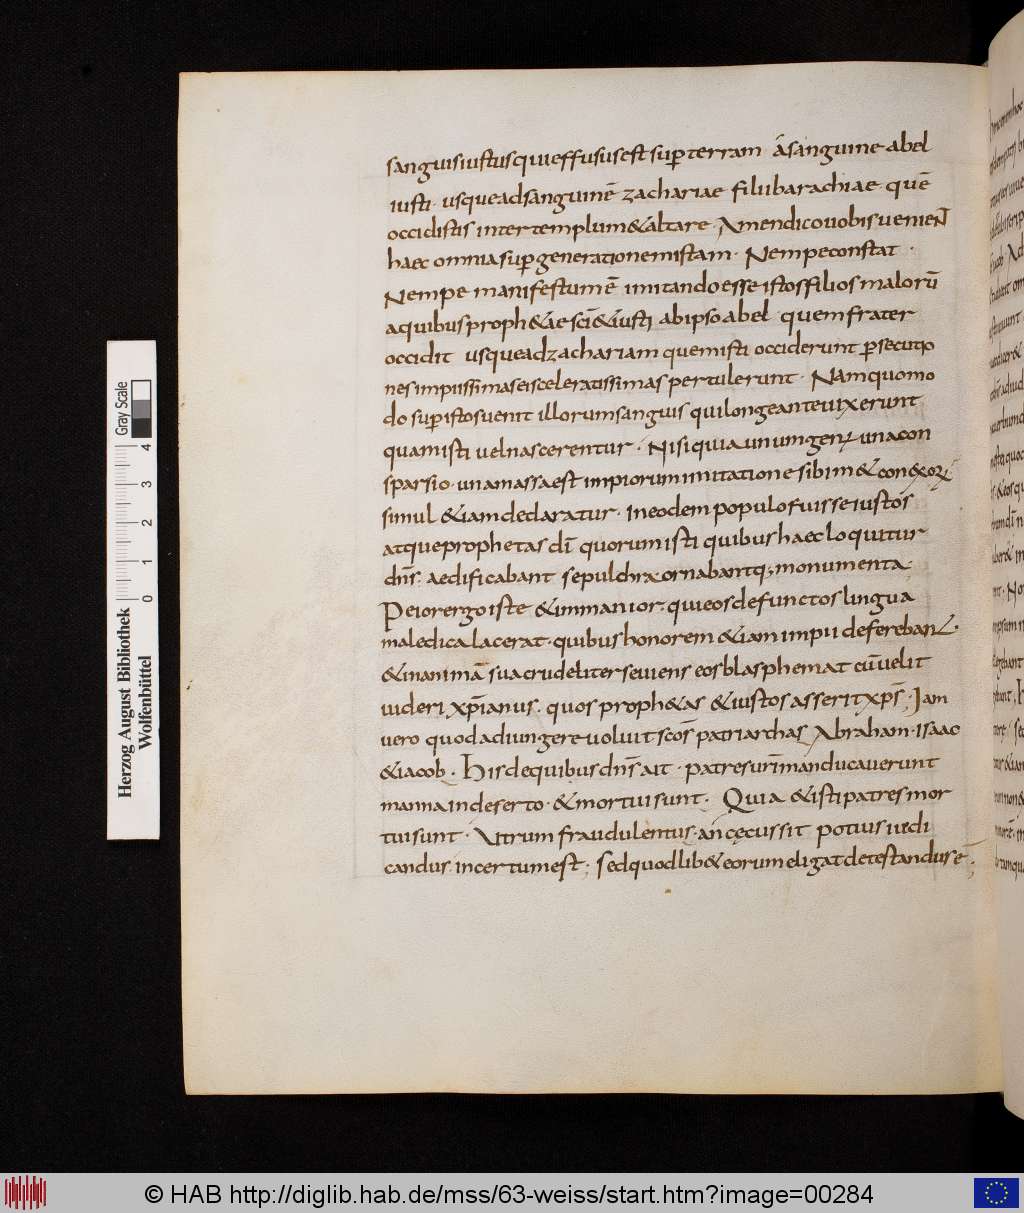 sanguis iustus qui effusus est sup terram a sanguine abel
iusti. usque ad sanguinē zachariae filii barachiae quē
occidistis inter templum & altare. Amen dico uobis uenient
haec omnia sup generationem istam. Nempe constat.
Nempe manifestum ē imitando esse istos filios malorū
a quibus proph&ae sc̄i & iusti ab ipso abel quem frater
occidit usque ad zachariam quem isti occiderunt psecutio
nes impiissimas et sceleratissimas pertulerunt. Nam quomo
do sup istos uenit illorum sanguis qui longe ante uixerunt
quam isti uel nascerentur. Nisi quia unum gen; una con
sparsio. una massa est impiorum imitatione sibim&
simul &iam declaratur. in eodem populo fuisse iustos
atque prophetas dī quorum isti quibus haec loquitur
dn̄s. aedificabant sepulchra ornabantq; monumenta.
Peior ergo iste & immanior qui eos defunctos lingua
maledica lacerat. quibus honorem &iam impii defereban.
& in animā sua crudeliter seuiens eos blasphemat cū uelit
uideri xp̄ianus. quos proph&as & iustos asserit xp̄s. Iam
uero quod adiungere uoluit sc̄os patriarchas Abraham. isaac
& iacob. His de quibus dn̄s ait. patres ur̄i manducauerunt
manna in deserto. & mortui sunt. Quia & isti patres mor
tui sunt. Utrum fraudulentus. an cęcus sit potius iudi
candus. incertum est; sed quodlib& eorum eligat detestandus ē;
Herzog August Bibliothek
Wolfenbüttel
0 1 2 3 4
Gray Scale
© HAB http://diglib.hab.de/mss/63-weiss/start.htm?image=00284